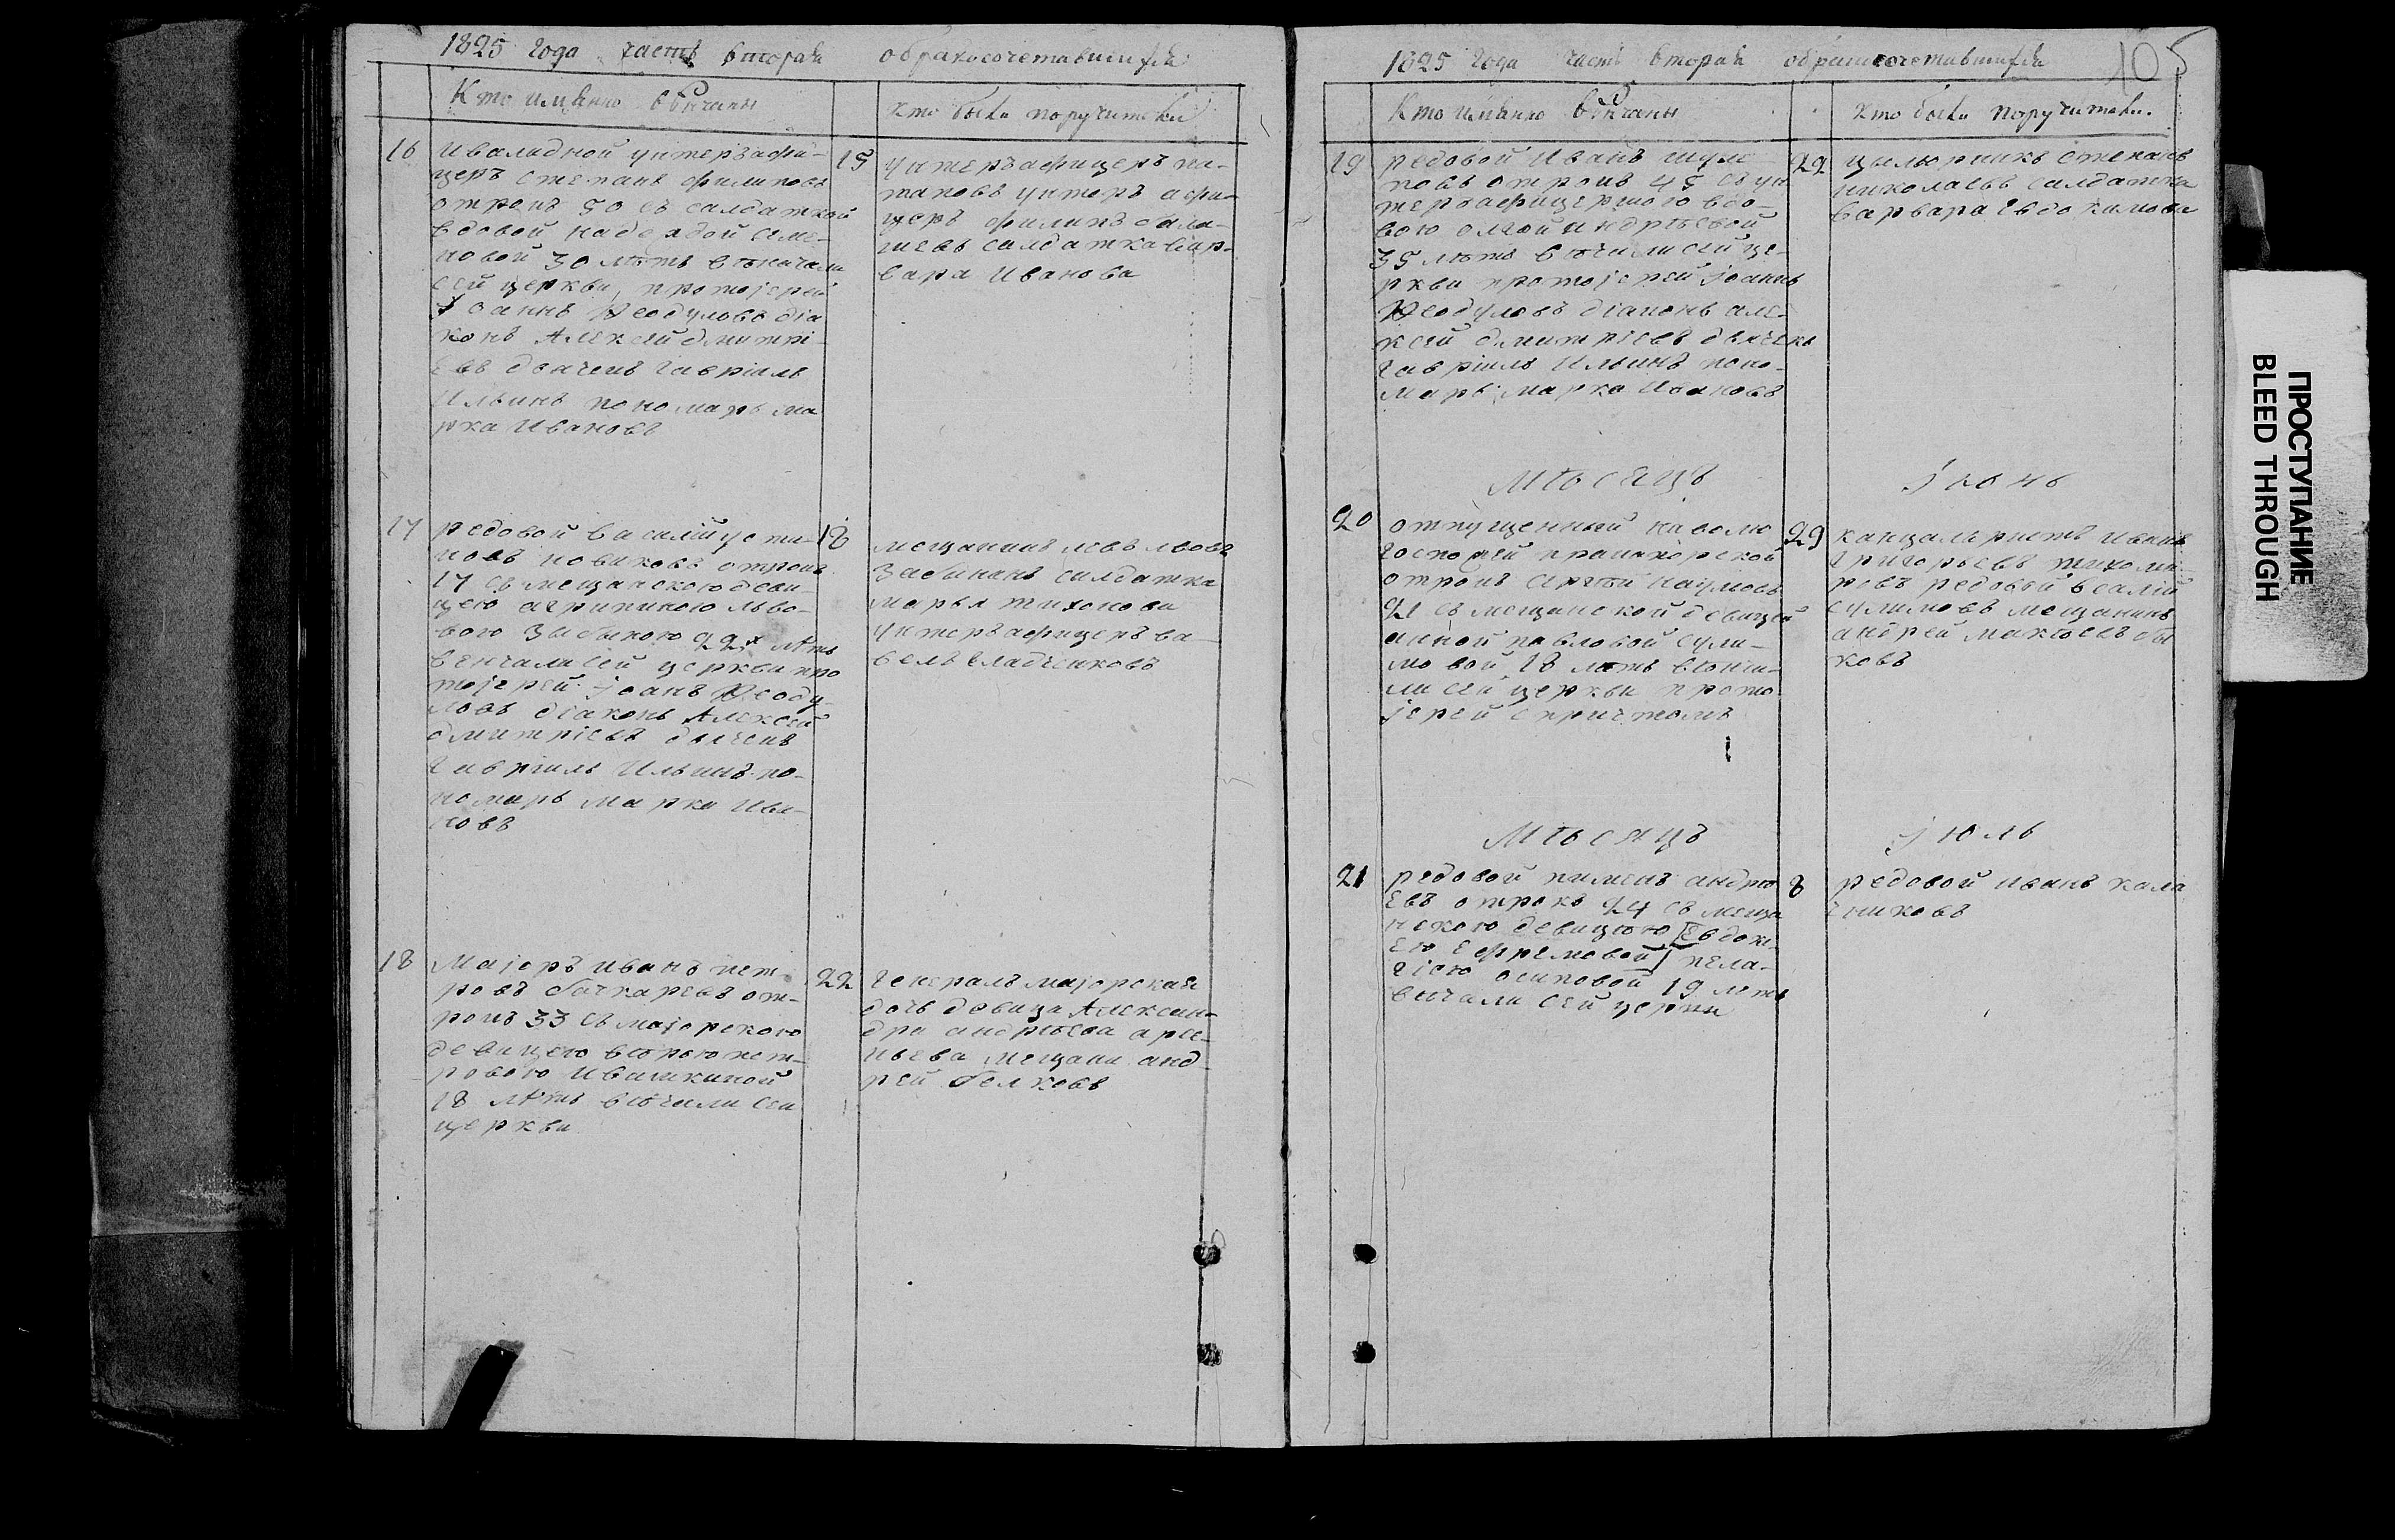 1825 года часть вторая о бракосочетавшихся
Кто имянно венчаны
Кто были поручители
16
ивалидной унтеръафи-
церъ степанъ филиповъ
отрокъ 50 съ салдаткой
вдовой надеждой семе-
новой 30 летъ венчали
сей церкви протоіерей
Іоаннъ Ѳеодуловъ діа
конъ Алексей дмитрі
евъ дьячекъ гавріилъ
Ильинъ пономарь ма
рка Ивановъ
15
унтеръафицеръ
унтеръ афи-
церъ филипъ
салдатка вар-
вара Иванова
17
редовой василій усти-
новъ новиковъ отрокъ
17 съ мещанскою деви-
цею агрипиною льво-
вою 22х летъ
венчали сей церкви про
тоіерей іоанъ Ѳеоду-
ловъ діаконъ Алексей
дмитріевъ дьячекъ
гавріилъ Ильинъ по-
номарь марка Ива-
новъ
18
мещанинъ левъ львовъ
салдатка
марья тихонова
унтеръафицеръ са-
велъ гладченковъ
18
Маіоръ иванъ пет-
ровъ бочкаревъ от-
рокъ 33 съ маіорскою
девицею верою пет-
ровою ивашкиной
18 летъ венчали сей
церкви
22
генералъ маіорская
дочь девица Алексан-
дра андреева арсе-
ньева мещани анд-
рей белковъ
1825 года часть вторая о бракосочетавшихся
105
Кто имянно венчаны
Кто были поручители.
19
редовой Иванъ шули
повъ отрокъ 45 съ ун
теръафицершою вдо-
вою олгой индреевой
35 летъ венчали сей це-
ркви протоіерей іоаннъ
Ѳеодуловъ діаконъ але-
ксей дмитріевъ дьячекъ
гавріилъ Ильинъ поно-
марь марка Ивановъ
22
цылюрникъ степанъ
николаевъ салдатка
варвара евдокимова
Месяцъ Іюнь
20
отпущенный на волю
госпожей
отрокъ сергей наумовъ
21 съ мещанской девицей
анной павловой сули-
мовой 18 летъ венча-
ли сей церкви прото
іерей с причтомъ
29
канцыляристъ иванъ
григорьевъ тихоми-
ровъ редовой василій
сулимовъ мещанинъ
андрей бы
ковъ
Месяцъ Іюль
21
редовой пименъ андре
евъ отрокъ 24 съ меща
нскою девицею [Евдок
ею ефремовой] пела-
гіею осиповой 19 летъ
венчали сей церкви
8
редовой иванъ кала
чниковъ
ПРОСТУПАНИЕ
BLEED THROUGH